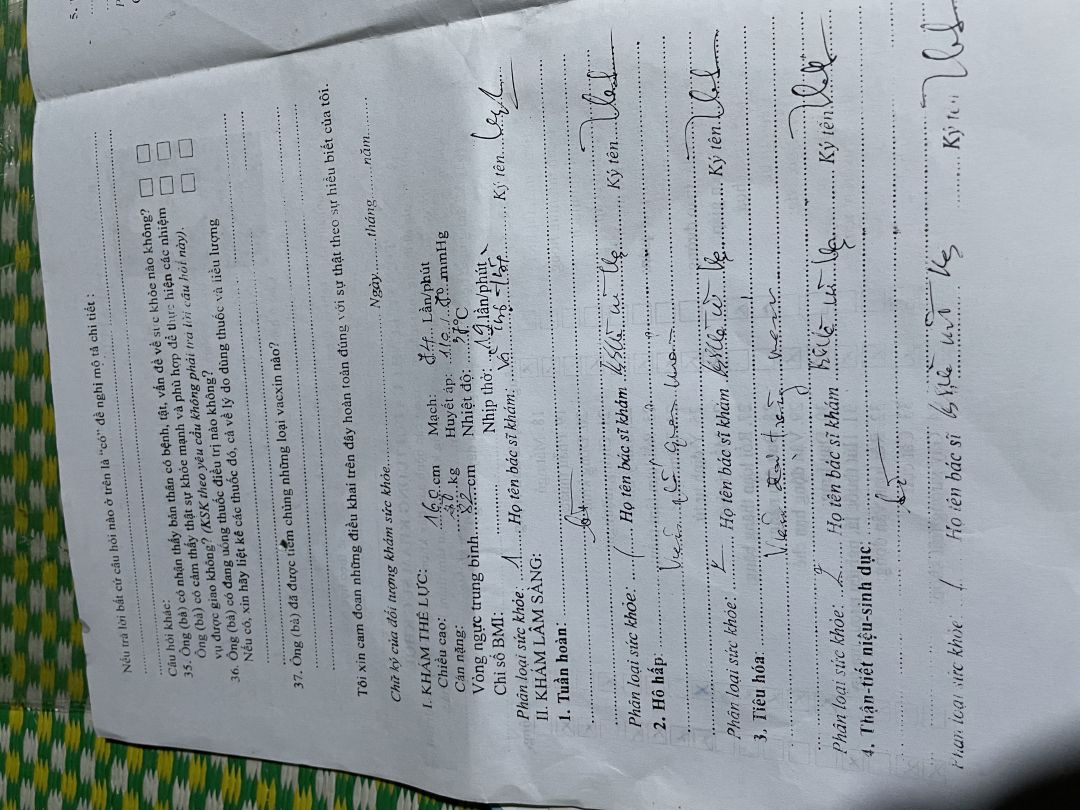 5.
Nếu trả lời bất cứ câu hỏi nào ở trên là "có" đề nghị mô tả chi tiết :
Câu hỏi khác:
35. Ông (bà) có nhận thấy bản thân có bệnh, tật, vấn đề về sức khỏe nào không?
Ông (bà) có cảm thấy thật sự khỏe mạnh và phù hợp để thực hiện các nhiệm
vụ được giao không? (KSK theo yêu cầu không phải trả lời câu hỏi này).
36. Ông (bà) có đang uống thuốc điều trị nào không?
Nếu có, xin hãy liệt kê các thuốc đó, cả về lý do dùng thuốc và liều lượng
37. Ông (bà) đã được tiêm chủng những loại vacxin nào?
Tôi xin cam đoan những điều khai trên đây hoàn toàn đúng với sự thật theo sự hiểu biết của tôi.
Ngày......tháng......năm......
Chữ ký của đối tượng khám sức khỏe
I. KHÁM THỂ LỰC:
Chiều cao: 160 cm Mạch: Lần/phút
Cân nặng: kg Huyết áp: 110/ mmHg
Vòng ngực trung bình cm Nhiệt độ: 37°C
Chỉ số BMI: Nhịp thở: lần/phút
Phân loại sức khỏe: 1 Họ tên bác sĩ khám: Ký tên
II. KHÁM LÂM SÀNG:
1. Tuần hoàn:
Phân loại sức khỏe: 1 Họ tên bác sĩ khám Ký tên
2. Hô hấp: Viêm phế quản
Phân loại sức khỏe: Họ tên bác sĩ khám Ký tên
3. Tiêu hóa: Viêm đại tràng
Phân loại sức khỏe: 2 Họ tên bác sĩ khám Ký tên
4. Thận-tiết niệu-sinh dục:
Phân loại sức khỏe 1 Họ tên bác sĩ Ký tên